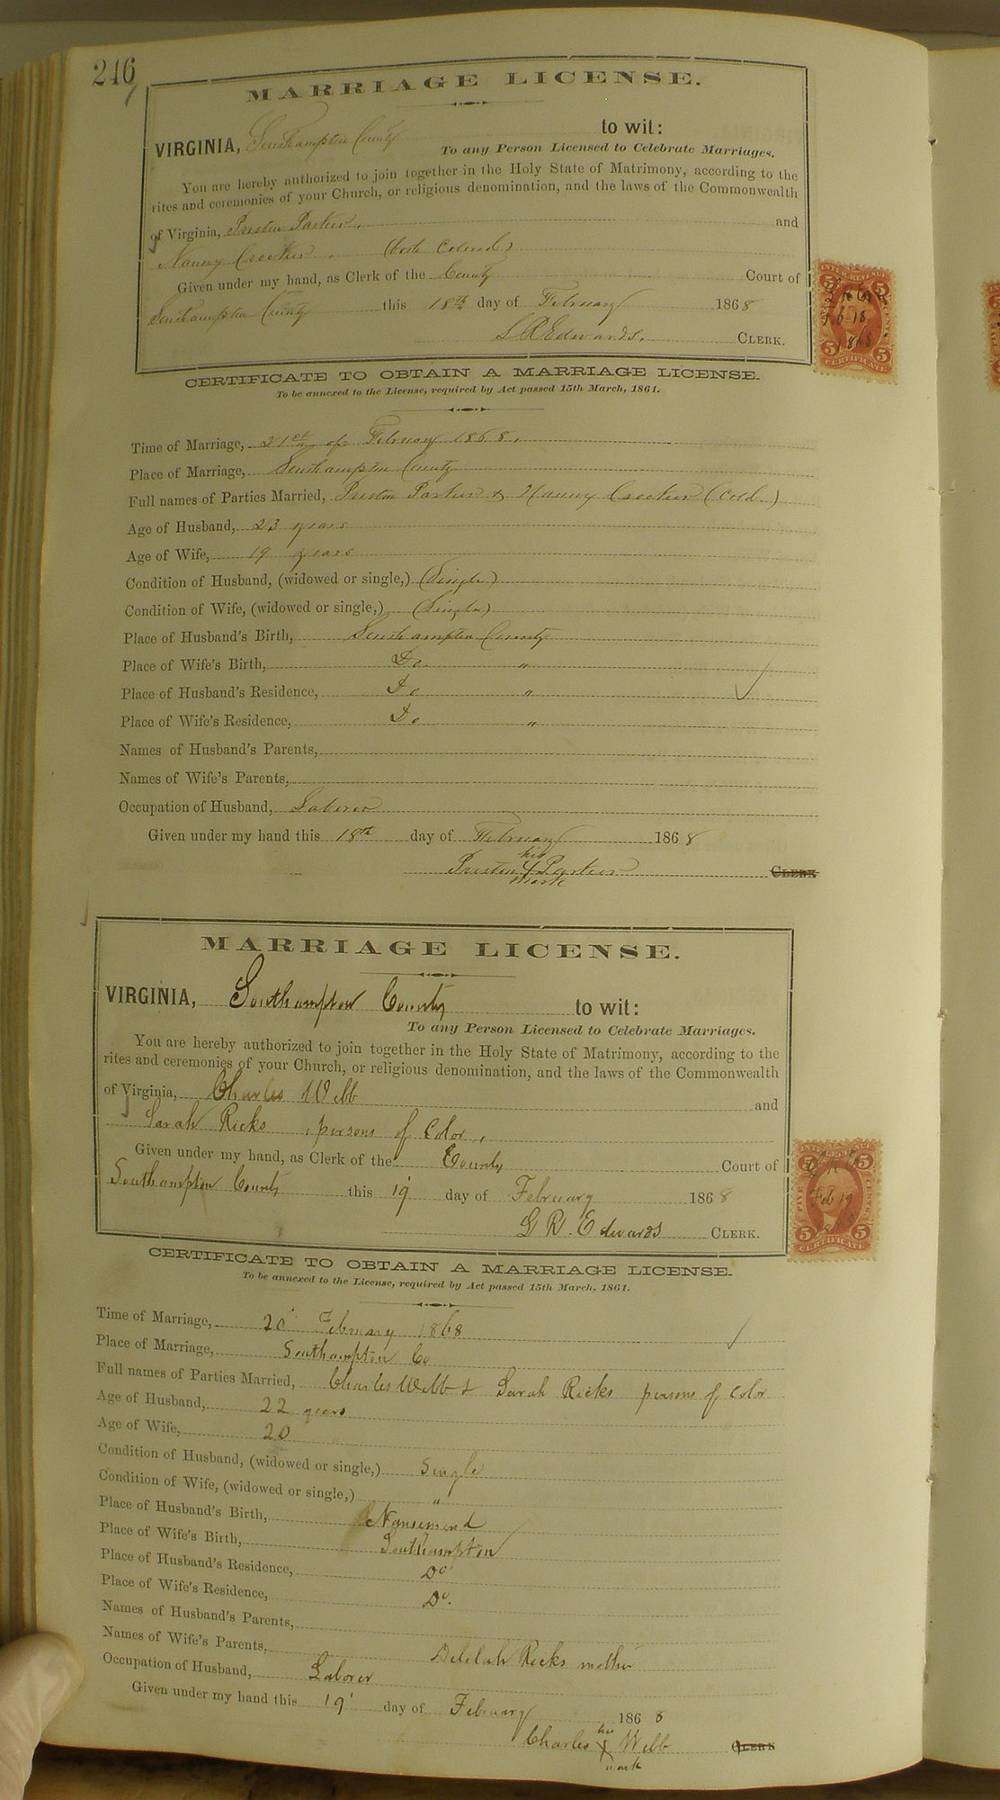 246
MARRIAGE LICENSE.
VIRGINIA, Southampton County to wit:
To any Person Licensed to Celebrate Marriages.
You are hereby authorized to join together in the Holy State of Matrimony, according to the
rites and ceremonies of your Church, or religious denomination, and the laws of the Commonwealth
of Virginia, Preston Parker, and
Nanny Crocker. (both Colored)
Given under my hand, as Clerk of the County Court of
Southampton County this 18th day of February 1868
L R Edwards, CLERK.
INTER. REVENUE
Feb 18
1868
5 5
CERTIFICATE
CERTIFICATE TO OBTAIN A MARRIAGE LICENSE.
To be annexed to the License, required by Act passed 15th March, 1861.
Time of Marriage, 21st of February 1868.
Place of Marriage, Southampton County
Full names of Parties Married, Preston Parker & Nanny Crocker (Cold)
Age of Husband, 23 years
Age of Wife, 19 years
Condition of Husband, (widowed or single,) (Single)
Condition of Wife, (widowed or single,) (Single)
Place of Husband's Birth, Southampton County
Place of Wife's Birth, Do "
Place of Husband's Residence, Do "
Place of Wife's Residence, Do "
Names of Husband's Parents,
Names of Wife's Parents,
Occupation of Husband, Laborer
Given under my hand this 18th day of February 1868
his
Preston X Parker CLERK
mark
MARRIAGE LICENSE.
VIRGINIA, Southampton County to wit:
To any Person Licensed to Celebrate Marriages.
You are hereby authorized to join together in the Holy State of Matrimony, according to the
rites and ceremonies of your Church, or religious denomination, and the laws of the Commonwealth
of Virginia, Charles Webb and
Sarah Ricks, persons of Color,
Given under my hand, as Clerk of the County Court of
Southampton County this 19 day of February 1868
L R. Edwards CLERK.
5 5
Feb 19
5 5
CERTIFICATE
CERTIFICATE TO OBTAIN A MARRIAGE LICENSE.
To be annexed to the License, required by Act passed 15th March, 1861.
Time of Marriage, 20 February 1868
Place of Marriage, Southampton Co
Full names of Parties Married, Charles Webb & Sarah Ricks persons of Color
Age of Husband, 22 years
Age of Wife, 20
Condition of Husband, (widowed or single,) Single
Condition of Wife, (widowed or single,) "
Place of Husband's Birth, Nansemond
Place of Wife's Birth, Southampton
Place of Husband's Residence, Do
Place of Wife's Residence, Do.
Names of Husband's Parents,
Names of Wife's Parents, Delilah Ricks mother
Occupation of Husband, Laborer
Given under my hand this 19 day of February 1868
his
Charles X Webb CLERK
mark